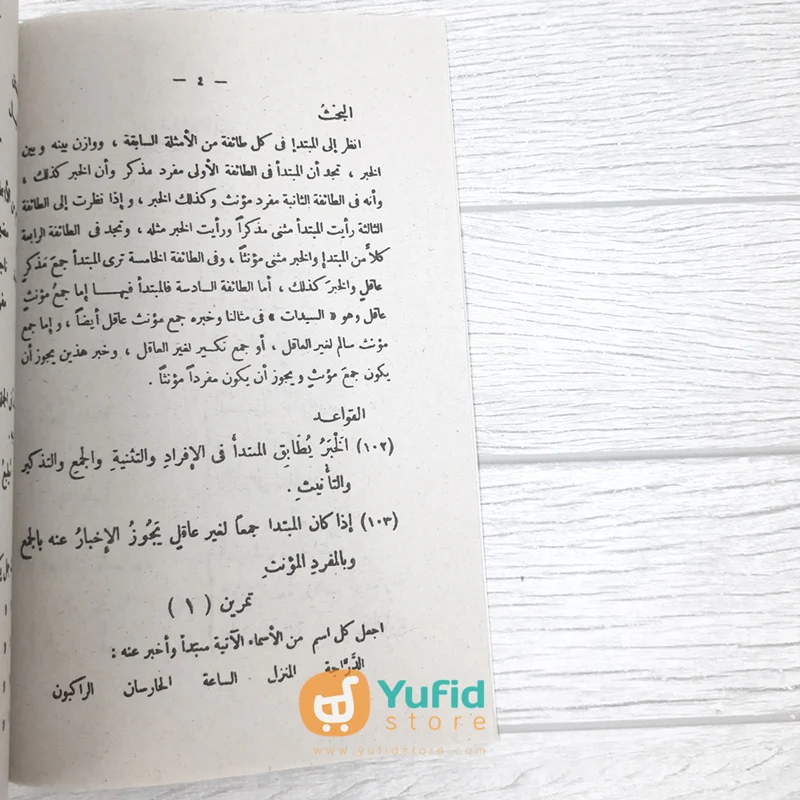 — ٤ —
البحثُ
انظر إلى المبتدإ فى كل طائفة من الأمثلة السابقة ، ووازن بينه وبين
الخبر ، تجد أن المبتدأ فى الطائفة الأولى مفرد مذكر وأن الخبر كذلك ،
وأنه فى الطائفة الثانية مفرد مؤنث وكذلك الخبر ، وإذا نظرت إلى الطائفة
الثالثة رأيت المبتدأ مثنى مذكراً ورأيت الخبر مثله ، وتجد فى الطائفة الرابعة
كلاًّ من المبتدإ والخبر مثنى مؤنثاً ، وفى الطائفة الخامسة ترى المبتدأ جمعَ مذكرٍ
عاقلٍ والخبرَ كذلك ، أما الطائفة السادسة فالمبتدأ فيهـا إما جمعُ مؤنثٍ
عاقل وهو « السيدات » فى مثالنا وخبره جمع مؤنث عاقل أيضاً ، وإما جمع
مؤنث سالم لغير العاقل ، أو جمع تكسير لغير العاقل ، وخبر هذين يجوز أن
يكون جمعَ مؤنثٍ ويجوز أن يكون مفرداً مؤنثاً .
القواعـد
(١٠٢) الْخَبَرُ يُطَابِقُ المبتدأ فى الإفرادِ والتثنيةِ والجمعِ والتذكير
والتأنيثِ .
(١٠٣) إذا كان المبتدا جمعًا لغير عاقلٍ يَجُوزُ الإخبارُ عنه بالجمع
وبالمفردِ المؤنثِ
تمرين ( ١ )
اجعل كل اسم من الأسماء الآتية مبتدأ وأخبر عنه :
الدَّرَّاجة المنزل الساعة الحارسان الراكبون
Yufid
store
www.yufidstore.com